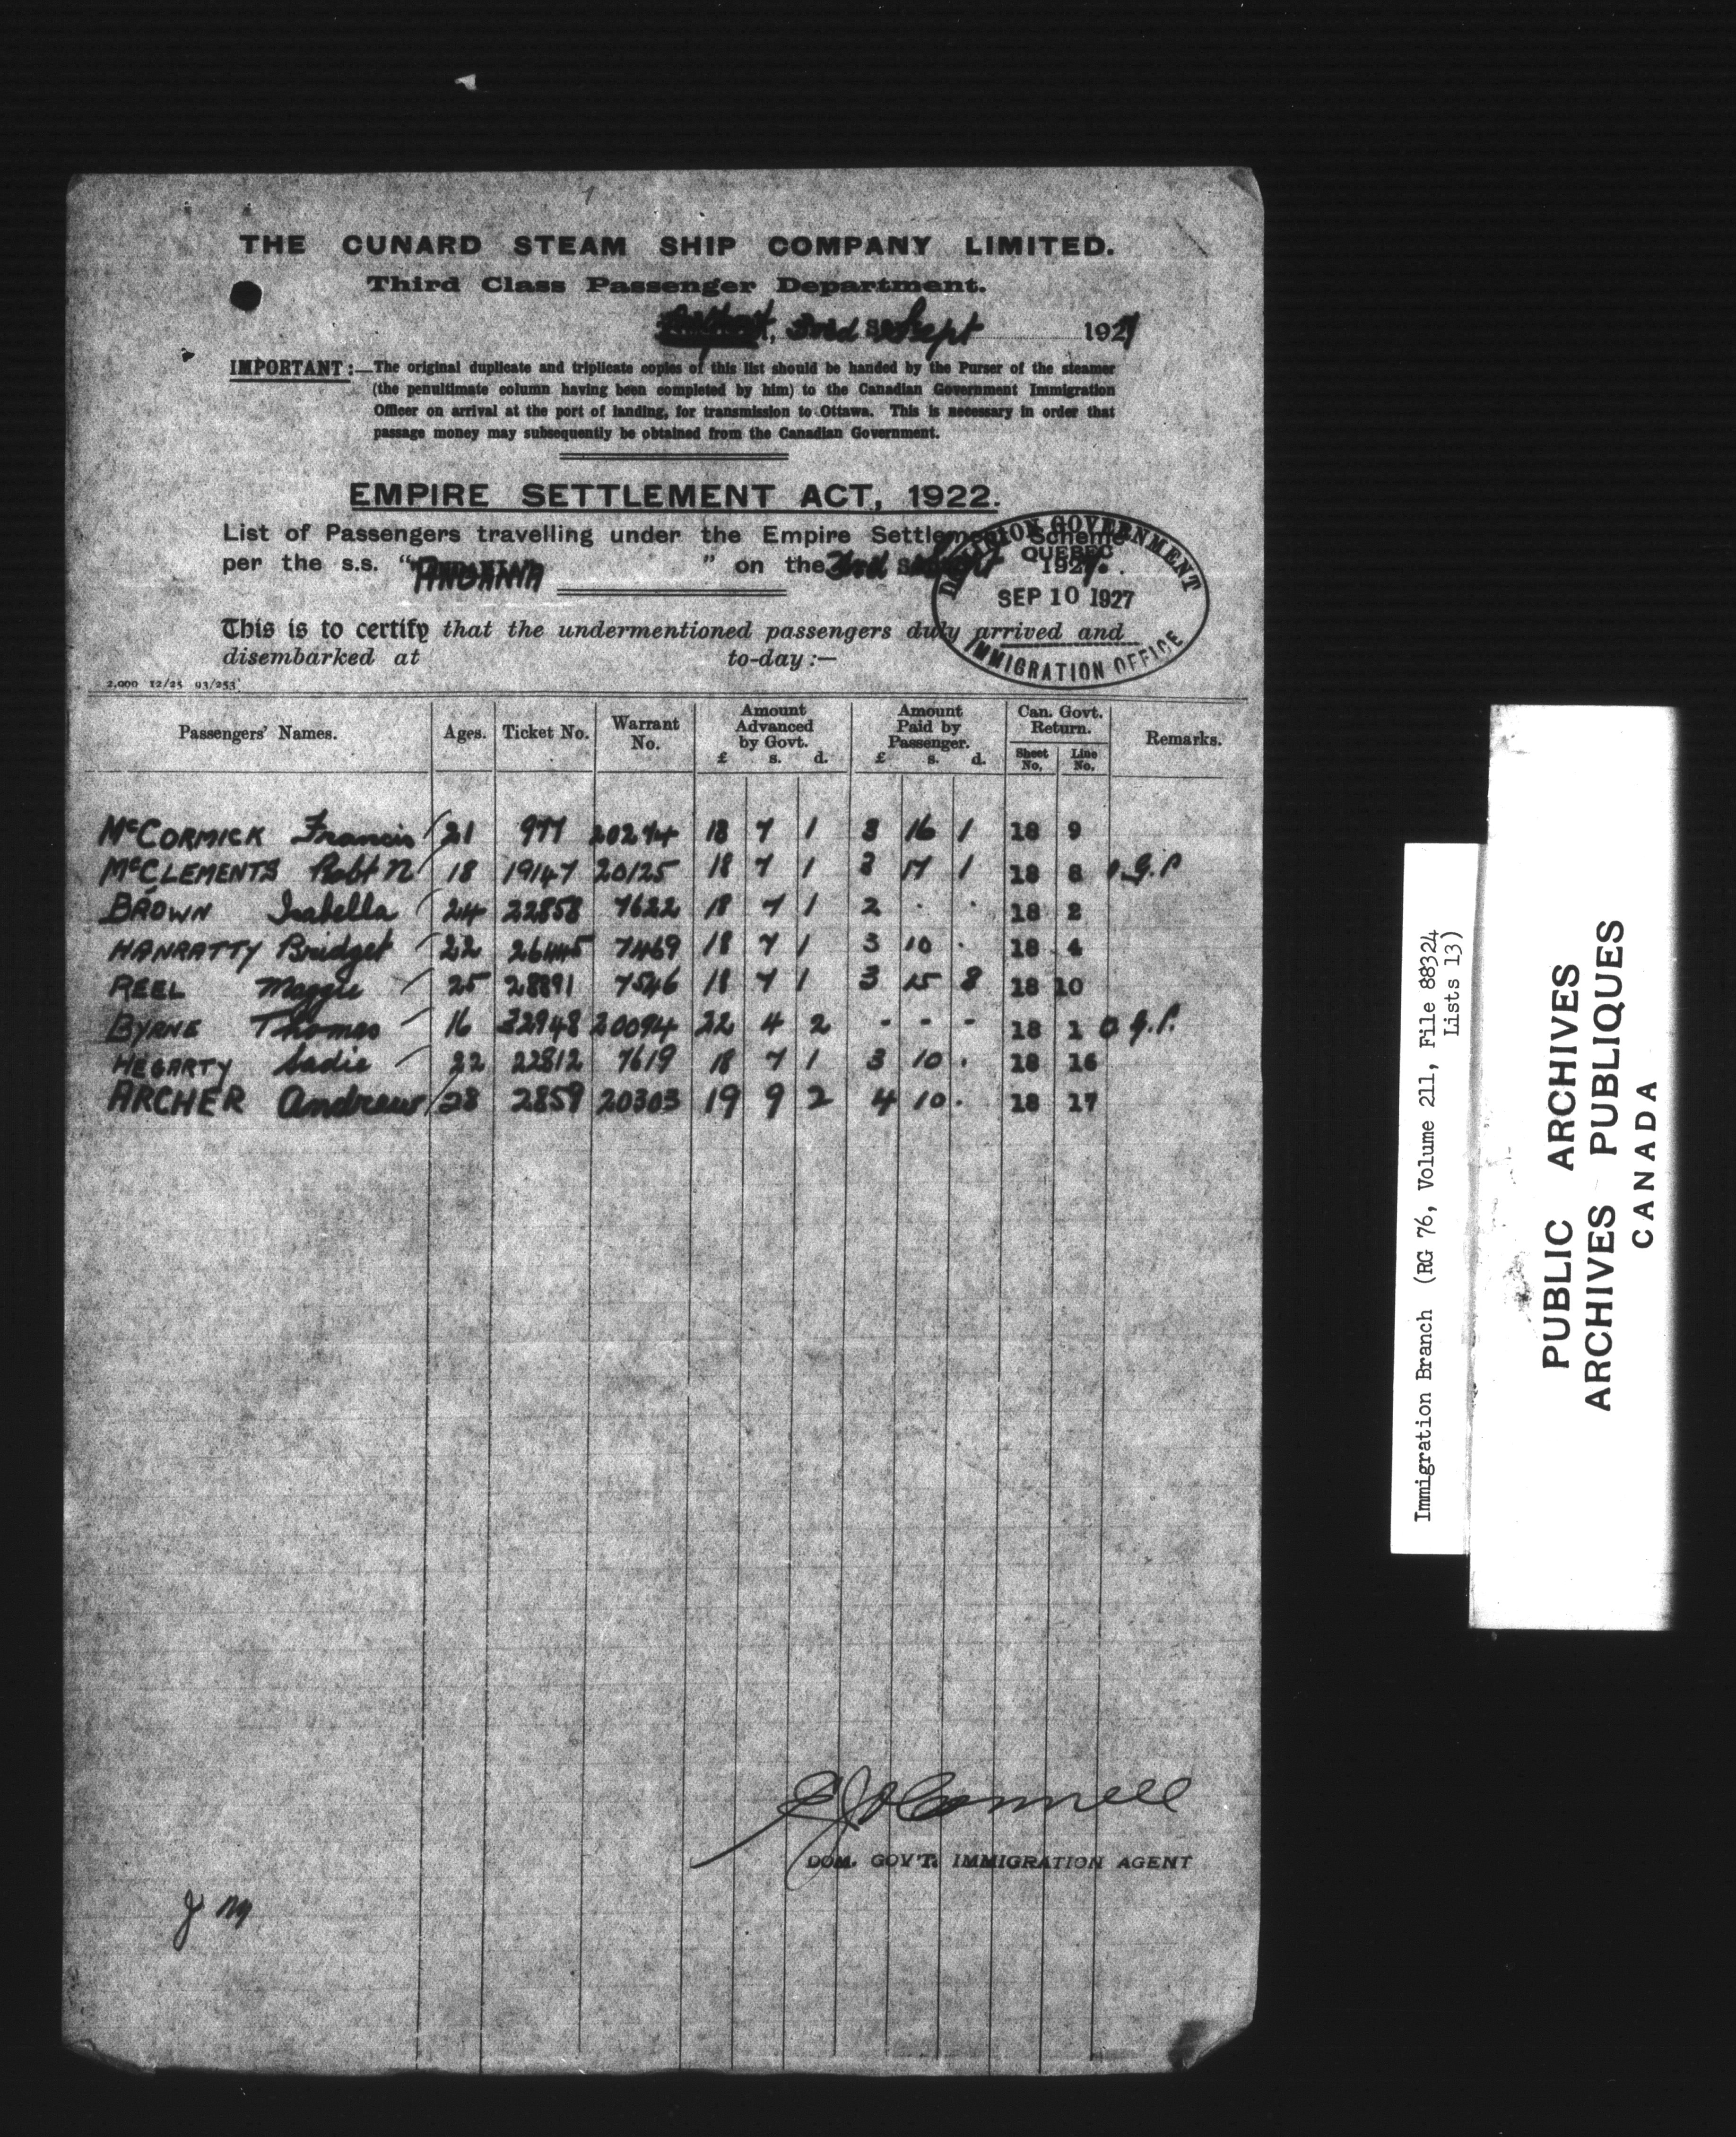 THE CUNARD STEAM SHIP COMPANY LIMITED.
Third Class Passenger Department.
3rd Sept 1927
IMPORTANT:—The original duplicate and triplicate copies of this list should be handed by the Purser of the steamer
(the penultimate column having been completed by him) to the Canadian Government Immigration
Officer on arrival at the port of landing, for transmission to Ottawa. This is necessary in order that
passage money may subsequently be obtained from the Canadian Government.
EMPIRE SETTLEMENT ACT, 1922.
List of Passengers travelling under the Empire Settlement Scheme
per the s.s. " " on the 3rd Sept 1927.
DOMINION GOVERNMENT
QUEBEC
SEP 10 1927
IMMIGRATION OFFICE
This is to certify that the undermentioned passengers duly arrived and
disembarked at to-day:—
2,000 12/25 93/253
Passengers' Names. Ages. Ticket No. Warrant No. Amount Advanced by Govt. £ s. d. Amount Paid by Passenger. £ s. d. Can. Govt. Return. Sheet No. Line No. Remarks.
McCORMICK Francis 21 977 20274 18 7 1 3 16 1 18 9
McCLEMENTS Robt N 18 19147 20125 18 7 1 3 17 1 18 8 O.G.P
BROWN Isabella 24 22858 7622 18 7 1 2 . . 18 2
HANRATTY Bridget 22 26445 7469 18 7 1 3 10 . 18 4
REEL Maggie 25 28891 7546 18 7 1 3 15 8 18 10
BYRNE Thomas 16 32948 20094 22 4 2 - - - 18 1 O.G.P.
HEGARTY Sadie 22 22812 7619 18 7 1 3 10 . 18 16
ARCHER Andrew 28 2859 20303 19 9 2 4 10 . 18 17
E J O'Connell
DOM. GOV'T. IMMIGRATION AGENT
J M
Immigration Branch (RG 76, Volume 211, File 88324
Lists 13)
PUBLIC ARCHIVES
ARCHIVES PUBLIQUES
CANADA